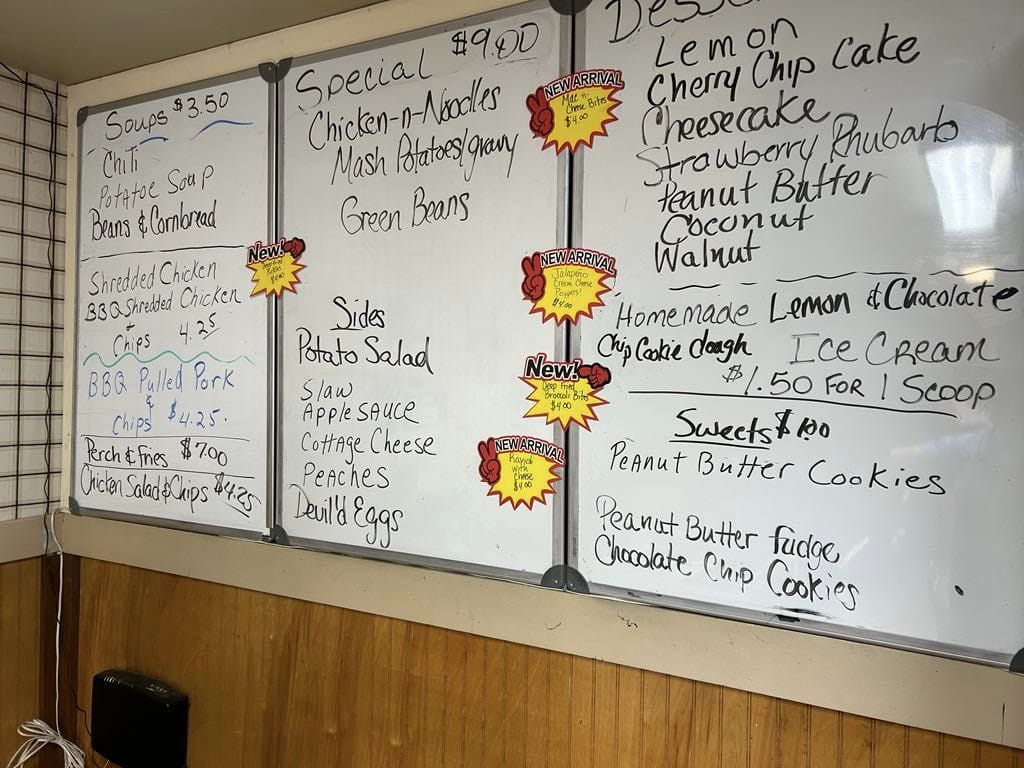 Soups $3.50
Chili
Potatoe Soup
Beans & Cornbread
Shredded Chicken
BBQ Shredded Chicken
&
Chips 4.25
BBQ Pulled Pork
&
Chips $4.25.
Perch & Fries $7.00
Chicken Salad & Chips $4.25
New!
Deep Fried
$4.00
Special $9.00
Chicken-n-Noodles
Mash Potatoes/gravy
Green Beans
Sides
Potato Salad
Slaw
Apple SAUCE
Cottage Cheese
Peaches
Devil'd Eggs
NEW ARRIVAL
Mac n-
Cheese Bites
$4.00
NEW ARRIVAL
Jalapeño
Cream Cheese
Poppers!
$4.00
New!
Deep Fried
Broccoli Bites
$4.00
NEW ARRIVAL
with
cheese
$4.00
Lemon
Cherry Chip Cake
Cheesecake
Strawberry Rhubarb
Peanut Butter
Coconut
Walnut
Homemade Lemon & Chocolate
Chip Cookie dough Ice Cream
$1.50 FOR 1 Scoop
Sweets $1.00
Peanut Butter Cookies
Peanut Butter fudge
Chocolate Chip Cookies